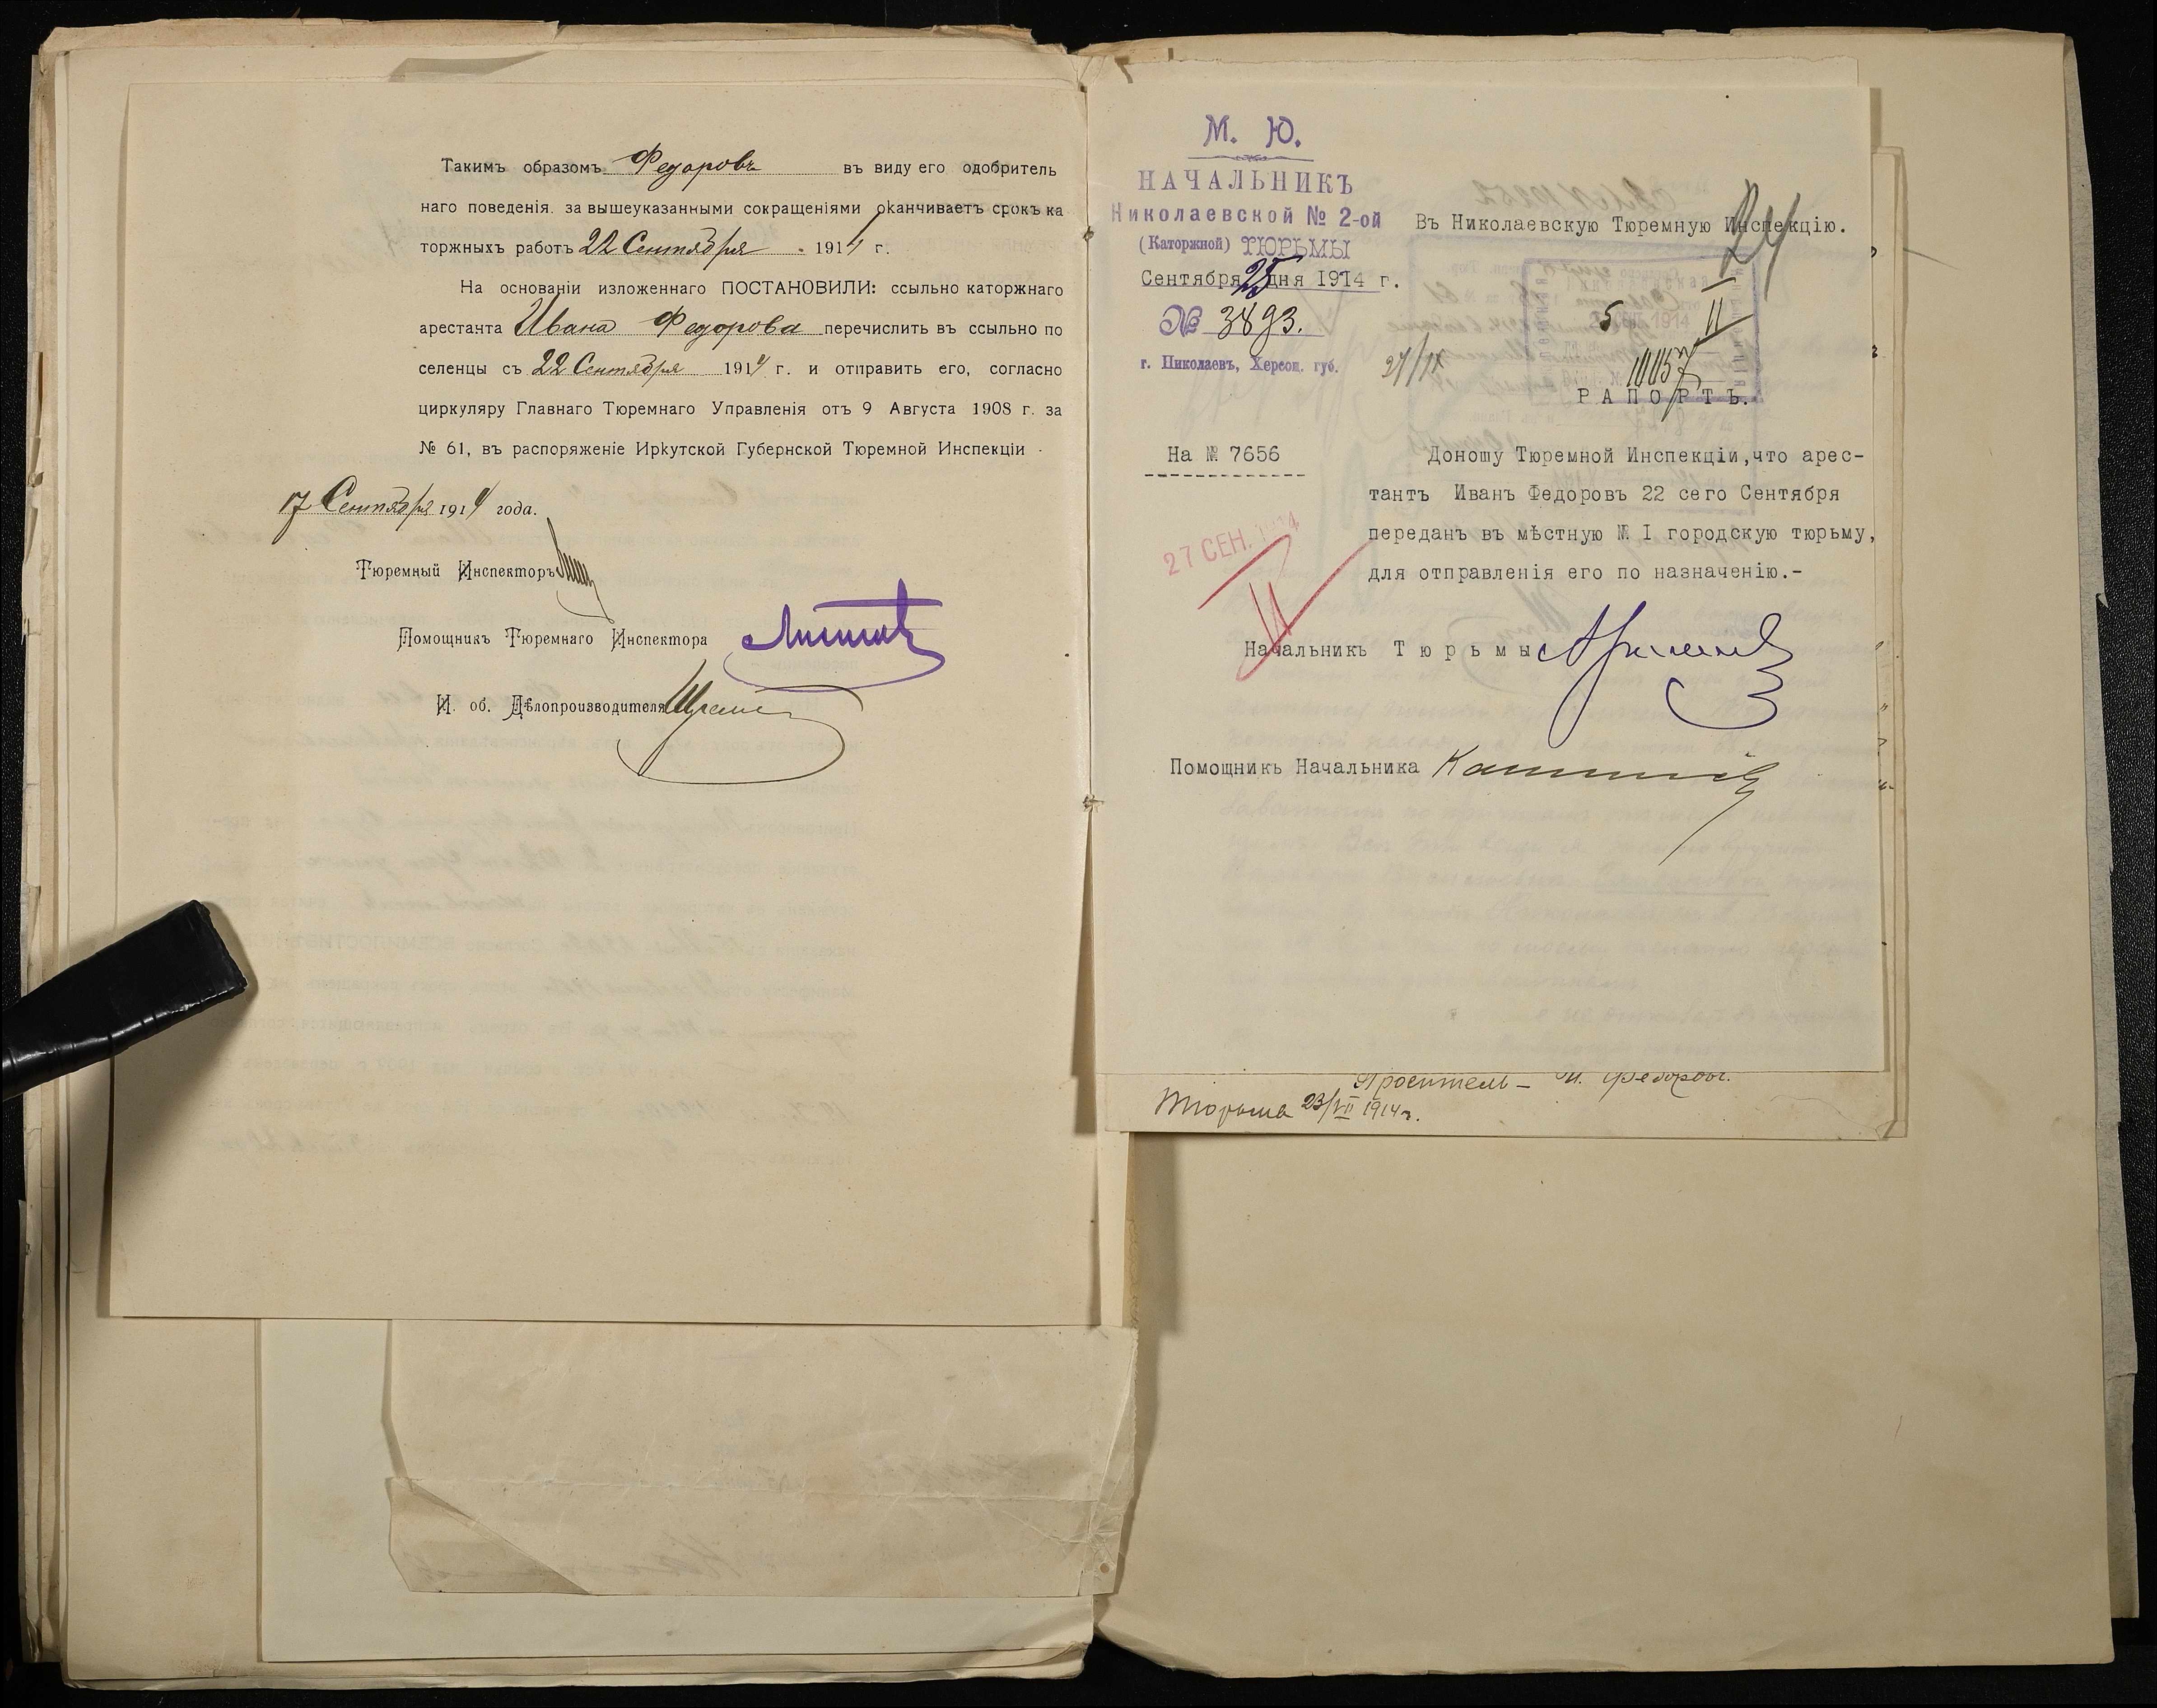 Такимъ образомъ Федоровъ въ виду его одобритель
наго поведенія. за вышеуказанными сокращеніями оканчиваетъ срокъ ка
торжныхъ работъ 22 Сентября 1914 г.
На основаніи изложеннаго ПОСТАНОВИЛИ: ссыльно каторжнаго
арестанта Ивана Федорова перечислить въ ссыльно по
селенцы съ 22 Сентября 1914 г. и отправить его, согласно
циркуляру Главнаго Тюремнаго Управленія отъ 9 Августа 1908 г. за
№ 61, въ распоряженіе Иркутской Губернской Тюремной Инспекціи
17 Сентября 1914 года.
Тюремный Инспекторъ
Помощникъ Тюремнаго Инспектора
И. об. Дѣлопроизводителя
М. Ю.
НАЧАЛЬНИКЪ
Николаевской № 2-ой
(Каторжной) ТЮРЬМЫ
Сентября 25 дня 1914 г.
№ 3893.
г. Николаевъ, Херсон. губ.
Въ Николаевскую Тюремную Инспекцію.
24
5
II
1914
27/IX
РАПОРТЪ.
На № 7656
Доношу Тюремной Инспекціи, что арес-
тантъ Иванъ Федоровъ 22 сего Сентября
переданъ въ мѣстную № I городскую тюрьму,
для отправленія его по назначенію.-
27 СЕН. 1914
Начальникъ Тюрьмы
Помощникъ Начальника
Проситель – И. Федоровъ.
Тюрьма 23/VII 1914 г.